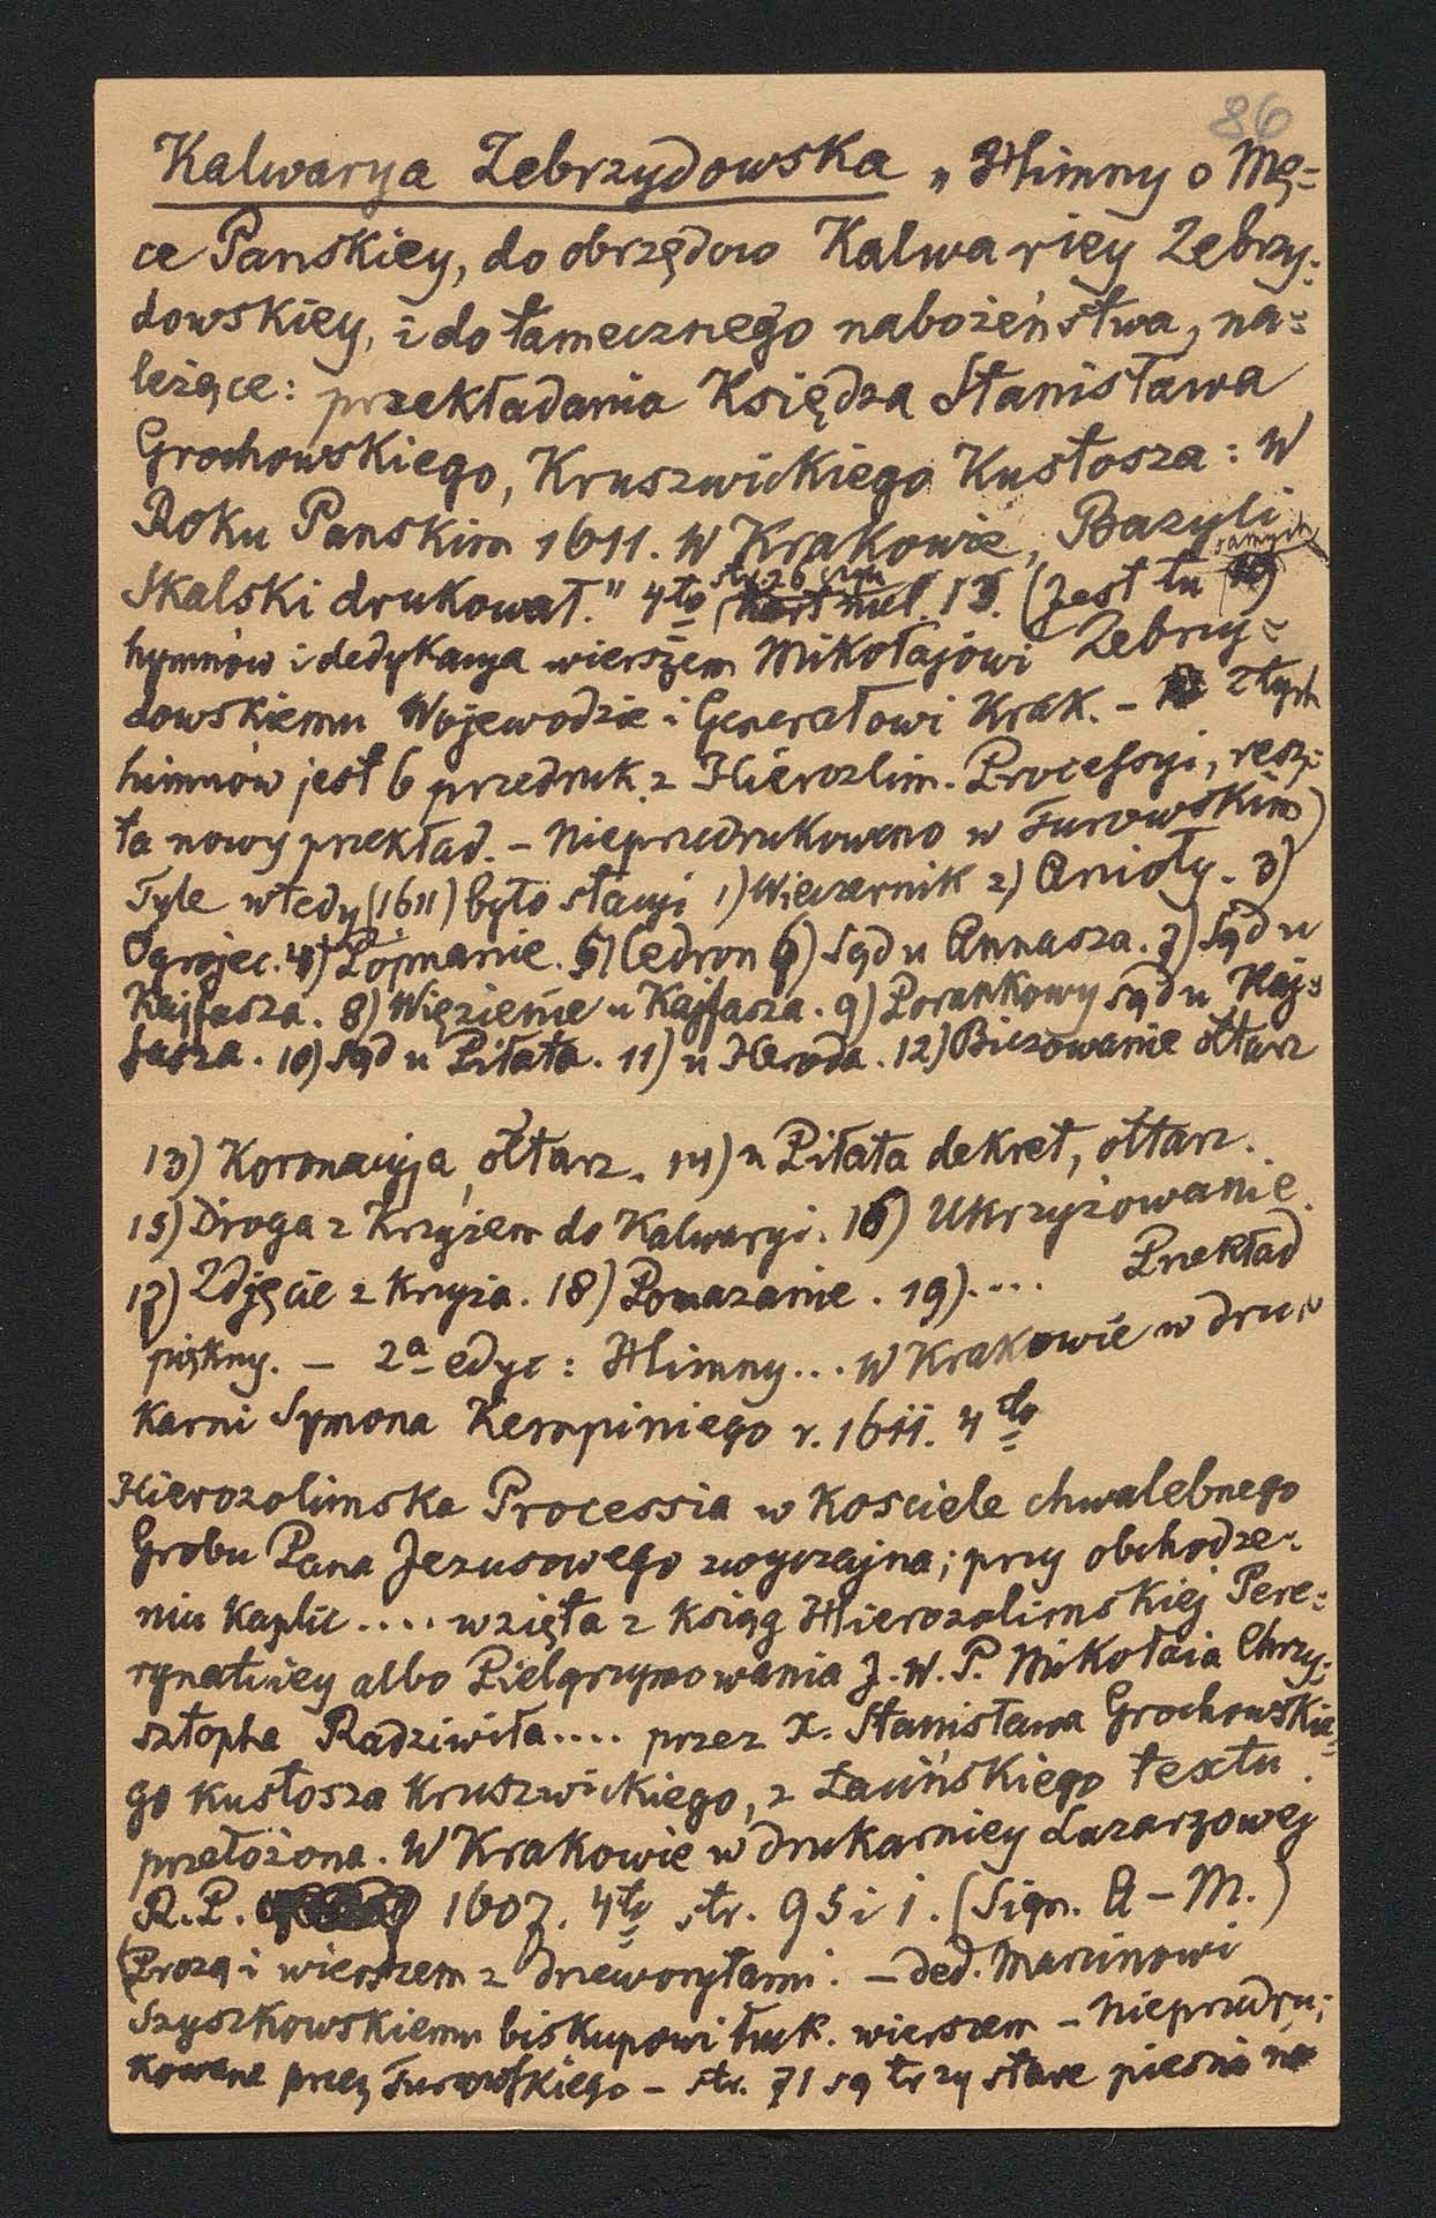 86
Kalwarya Zebrzydowska „Himny o Mę=
ce Panskiey, do obrzędow Kalwariey Zebrzy=
dowskiey, i do tamecznego nabożeństwa, na=
leżące: przekładania Księdza Stanisława
Grochowskiego, Kruszwickiego Kustosza: W
Roku Panskim 1611. W Krakowie, Bazyli
Skalski drukował." 4to str. 26 czyli 13. (Jest tu samych
hymnów i dedykacya wierszem Mikołajowi Zebrzy=
dowskiemu Wojewodzie i Generałowi Krak. - z tych
himnów jest 6 przedruk. z Hierozlim. Processyi, resz=
ta nowy przekład. - Nieprzedrukowano w Turowskim)
Tyle wtedy (1611) było stacyi 1) Wieczernik 2) Anioły. 3)
Ogrojec. 4) Pojmanie. 5) Cedron 6) Sąd u Annasza. 7) Sąd u
Kajfasza. 8) Więzienie u Kajfasza. 9) Porankowy sąd u Kaj=
fasza. 10) Sąd u Piłata. 11) u Heroda. 12) Biczowanie ołtarz
13) Koronacyja, ołtarz. 14) u Piłata dekret, ołtarz.
15) Droga z Krzyżem do Kalwaryi. 16) Ukrzyżowanie.
17) Zdjęcie z Krzyża. 18) Pomazanie. 19).... Przekład
piękny. — 2a edyc: Himny... W Krakowie w dru=
karni Symona Kempiniego r. 1611. 4to
Hierozolimska Processia w Kosciele chwalebnego
Grobu Pana Jezusowego zwyczajna; przy obchodze=
niu Kaplic.... wzięta z Ksiąg Hierozolimskiej Pere=
rynatiiey albo Pielgrzymowania J. W. P. Mikołaia Chrzy=
sztopha Radziwiła.... przez X. Stanisława Grochowskie=
go Kustosza Kruszwickiego, z Łacińskiego textu
przełożona. W Krakowie w drukarniey Lazarzowej
R.P. 1607. 4to str. 95 i 1. (Sign. A – M.)
(Prozą i wierszem z drzeworytami. — ded. Marcinowi
Szyszkowskiemu biskupowi Łuck. wierszem – Nieprzedru=
kowane przez Turowskiego – str. 71 są trzy stare piesni na